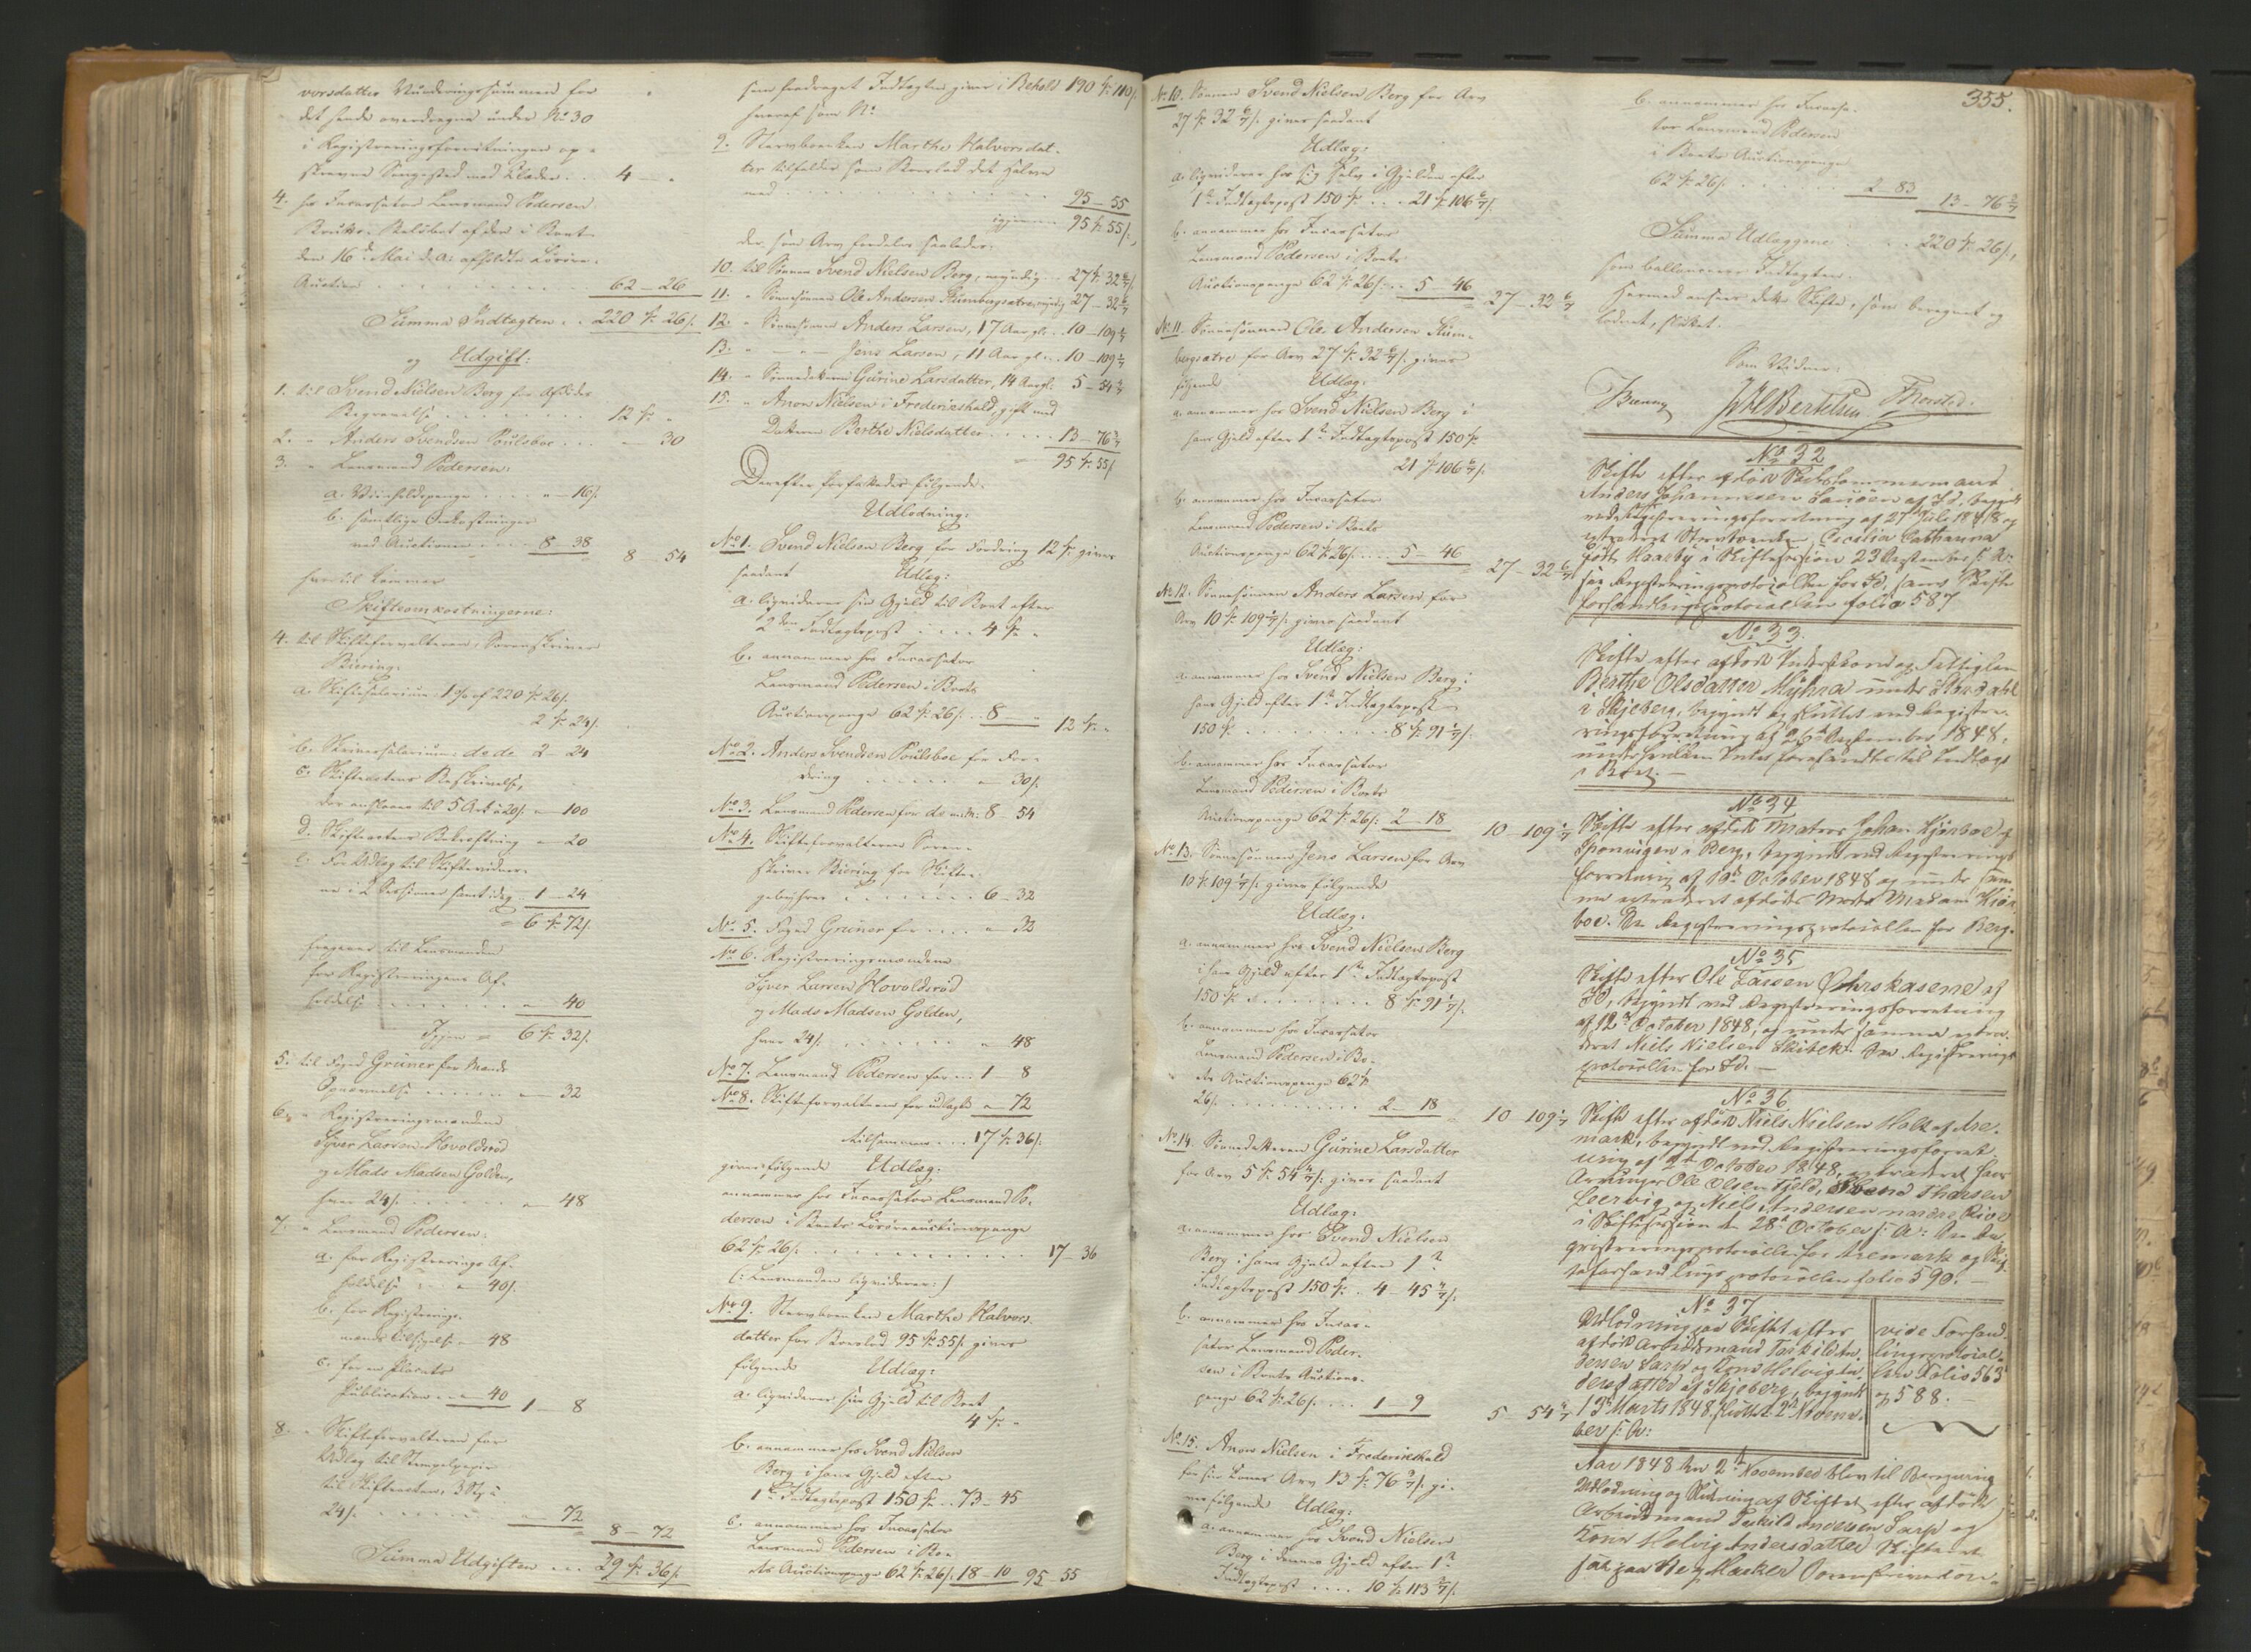 vorsdatter Vurderingssummen for
det hende overdragne under No 30
i Registreringsforretningen op-
skrevne Sengested med Klæder . . 4 — "
4. hos Incassator Lensmand Pedersen
Boets Beholdn af den i Boet
den 16de Mai d. A. afholdte Løsøre-
Auction . . . 62 — 26
Summa Indtægten . . 220 Sp 26 s.
og Udgift:
1. til Svend Nielsen Berg for Afdødes
Begravelse . . . 12 Sp "
2. " Anders Svendsen Poulsboe . . . " — 30
3. " Lensmand Pedersen:
a. . . . " — 16 s.
b. samtlige Omkostninger
ved Auctionen . . . 8 — 38
8 — 54
hvortil kommer
Skifteomkostningerne:
4. til Skifteforvalteren, Sorenskriver
Biering:
a. Skiftesalarium 1 % af 220 Sp 26 s.
2 Sp 24 s.
b. Skriversalarium do do 2 — 24
c. Skifteactens Beskrivelse,
der anslaaes til 5 Ark à 20 s. " — 100
d. Skifteactens Bekræftning " — 20
e. For Udlæg til Skiftevidner-
ne i 2 Sessioner samt idag 1 — 24
= 6 Sp 72 s.
fragaaer til Lensmanden
for Registreringens Af-
holdelse . . . " — 40
Igjen = 6 Sp 32 s.
5. til Foged Grüner for Mænds
Opnævnelse . . . " — 32
6. " Registreringsmændene
Syver Larsen Hovoldsrød
og Mads Madsen Golden,
hver 24 s. . . . " — 48
7. " Lensmand Pedersen:
a. for Registrerings Af-
holdelse . . . " — 40 s.
b. for Registrerings-
mænds Tilsigelse " — 48
c. for en Placats
Publication . . " — 40
1 — 8
8. " Skifteforvalteren for
Udlæg til Stempelpapir
til Skifteacten, 3 Stk à
24 s. . . . " — 72
8 — 72
Summa Udgiften . . . 29 Sp 36 s.
som fradraget Indtægten giver i Behold 190 Sp 110 s.
hvoraf som No
9. Stervboenken Marthe Halvorsdat-
ter tilfalder som Boeslod det Halve
med . . . 95 — 55
igjen = 95 Sp 55 s.,
der som Arv fordeles saaledes:
10. til Sønnen Svend Nielsen Berg, myndig . . 27 Sp 32 6/7 s.
11. " Sønnesønnen Ole Andersen Skumbergsætre, myndig 27 — 32 6/7
12. " Sønnesønnen Anders Larsen, 17 Aar gl. . . 10 — 109 1/7
13. " — " — Jens Larsen, 11 Aar gl. . . 10 — 109 1/7
14. " Sønnedatteren Gurine Larsdatter, 14 Aar gl. 5 — 54 4/7
15. " Anon Nielsen i Frederikshald, gift med
Datteren Berthe Nielsdatter . . . 13 — 76 3/7
= 95 Sp 55 s.
Derefter forfattedes følgende
Udlodning:
No 1. Svend Nielsen Berg for Fordring 12 Sp gives
saadant Udlæg:
a. liqviderer sin Gjæld til Boet efter
2den Indtægtspost . . . 4 Sp "
b. annammer hos Incassator
Lensmand Pedersen i Boets
Auctionspenge 62 Sp 26 s. . . 8 — "
12 Sp "
No 2. Anders Svendsen Poulsboe for For-
dring . . . " — 30 s.
No 3. Lensmand Pedersen for do 8 54
No 4. Skifteforvalteren Soren-
skriver Biering for Skifte-
gebyhrer . . . 6 — 32
No 5. Foged Grüner for . . . " — 32
No 6. Registreringsmændene
Syver Larsen Hovoldsrød
og Mads Madsen Golden,
hver 24 s. . . . " 48
No 7. Lensmand Pedersen for . . . 1 — 8
No 8. Skifteforvalteren for udlagte " — 72
tilsammen . . . 17 Sp 36 s.
gives følgende Udlæg:
annammer hos Incassator Lensmand Pe-
dersen i Boets Løsøreauctionspenge
62 Sp 26 s. . . . 17 — 36
(: Lensmanden liqviderer :)
No 9. Stervboenken Marthe Halvors-
datter for Boeslod 95 Sp 55 s. gives
følgende Udlæg:
a. liqviderer sin Gjæld til Boet
4 Sp "
b. annammer hos Svend Nielsen
Berg i hans Gjæld efter
1ste Indtægtspost 150 Sp . . 73 — 45
c. annammer hos Incassator
Lensmand Pedersen i Bo-
ets Auctionspenge 62 Sp 26 s. 18 — 10 95 — 55
No 10. Sønnen Svend Nielsen Berg for Arv
27 Sp 32 6/7 s. gives saadant
Udlæg:
a. liqviderer hos sig selv i Gjælden efter
1ste Indtægtspost 150 Sp . . . 21 Sp 106 6/7 s.
b. annammer hos Incassator
Lensmand Pedersen i Boets
Auctionspenge 62 Sp 26 s. . . 5 — 46
= 27 — 32 6/7
No 11. Sønnesønnen Ole Andersen Skum-
bergsætre for Arv 27 Sp 32 6/7 s. gives
følgende Udlæg:
a. annammer hos Svend Nielsen Berg i
hans Gjæld efter 1ste Indtægtspost 150 Sp
21 Sp 106 6/7 s.
b. annammer hos Incassator
Lensmand Pedersen i Boets
Auctionspenge 62 Sp 26 s. . . . 5 — 46
= 27 — 32 6/7
No 12. Sønnesønnen Anders Larsen for
Arv 10 Sp 109 1/7 s. gives saadant
Udlæg:
a. annammer hos Svend Nielsen Berg i
hans Gjæld efter 1ste Indtægtspost
150 Sp . . . 8 Sp 91 1/7 s.
b. annammer hos Incassator
Lensmand Pedersen i Boets
Auctionspenge 62 Sp 26 s. 2 — 18
10 — 109 1/7
No 13. Sønnesønnen Jens Larsen for Arv
10 Sp 109 1/7 s. gives følgende
Udlæg:
a. annammer hos Svend Nielsen Berg
i hans Gjæld efter 1ste Indtægtspost
150 Sp . . . 8 Sp 91 1/7 s.
b. annammer hos Incassator
Lensmand Pedersen i Bo-
ets Auctionspenge 62 Sp
26 s. . . . 2 — 18
10 — 109 1/7
No 14. Sønnedatteren Gurine Larsdatter
for Arv 5 Sp 54 4/7 s. gives saadant
Udlæg:
a. annammer hos Svend Nielsen
Berg i hans Gjæld efter 1ste
Indtægtspost 150 Sp . 4 — 45 4/7 s.
b. annammer hos Incas-
sator Lensmand Peder-
sen i Boets Auctions-
penge 62 Sp 26 s. . . . 1 — 9
5 — 54 4/7
No 15. Anon Nielsen i Frederikshald
for sin Kones Arv 13 Sp 76 3/7 s. gi-
ves følgende Udlæg:
a. annammer hos Svend Nielsen
Berg i dennes Gjæld efter 1ste
Indtægtspost . . . . 10 Sp 113 3/7 s.
355.
b. annammer hos Incassa-
tor Lensmand Pedersen
i Boets Auctionspenge
62 Sp 26 s. . . . 2 — 83
13 — 76 3/7
Summa Udlæggene . . . 220 Sp 26 s.,
som ballancerer Indtægten.
Hermed ansees dette Skifte, som beregnet og
lodnet, sluttet.
Som Vidner:
Biering Bertelsen Thorsted.
No 32
Skifte efter afdøde Skibstømmermand
Anders Johannesen Lausen af Id, begyndt
ved Registreringsforretning af 27de Juli 1848 og
extraderet Stervboenken Cecilia Cathanna
født Haaeby i Skiftesession 23 September s. A.
see Registreringsprotocollen for Id, samt Skifte
forhandlingsprotocollen folio 587
No 33.
Skifte efter afdøde Inderstkone og Fattiglem
Berthe Olsdatter Myhra under Skandahl
i Skjeberg, begyndt og sluttet ved Registre-
ringsforretning af 26de September 1848,
under hvilken Intet forefandtes til Indtægt
i Boet. —
No 34
Skifte efter afdøde Matros Johan Kjønboe af
Sponvigen i Berg, begyndt ved Registrerings
forretning af 19de October 1848 og under sam-
me extraderet afdødes Moder Madam Kjøn-
boe. See Registreringsprotocollen for Berg.
No 35
Skifte efter Ole Larsen Ørhrskasene af
Id, begyndt ved Registreringsforretning
af 12te October 1848, og under samme extra-
deret Niels Nielsen Skibek. See Registrerings
protocollen for Id. —
No 36
Skifte efter afdøde Niels Nielsen Holt af Are-
mark, begyndt ved Registreringsforret-
ning af 2de October 1848, extraderet hans
Arvinger Ole Olsen Fjeld, Svend Thorsen
Leervig og Niels Andersen nordre Riiser
i Skiftesession de 28de October s. A. See Re-
gistreringsprotocollen for Aremark og Skif-
teforhandlingsprotocollen folio 590. —
No 37
Udlodning paa Skiftet efter
afdøde Arbeidsmand Tarkild An-
dersen Sarp og Kone Helvig An-
dersdatter af Skjeberg, begyndt
13de Marts 1848, sluttet 2de Novem-
ber s. A.
vide Forhand-
lingsprotocol-
len Folio 563
og 588. —
Aar 1848 den 2de November blev til Beregning
Udlodning og Slutning af Skiftet efter afdøde
Arbeidsmand Tarkild Andersen Sarp og
Kone Helvig Andersdatter Skifteret
sat paa Berg Mosker Sorenskriveron-